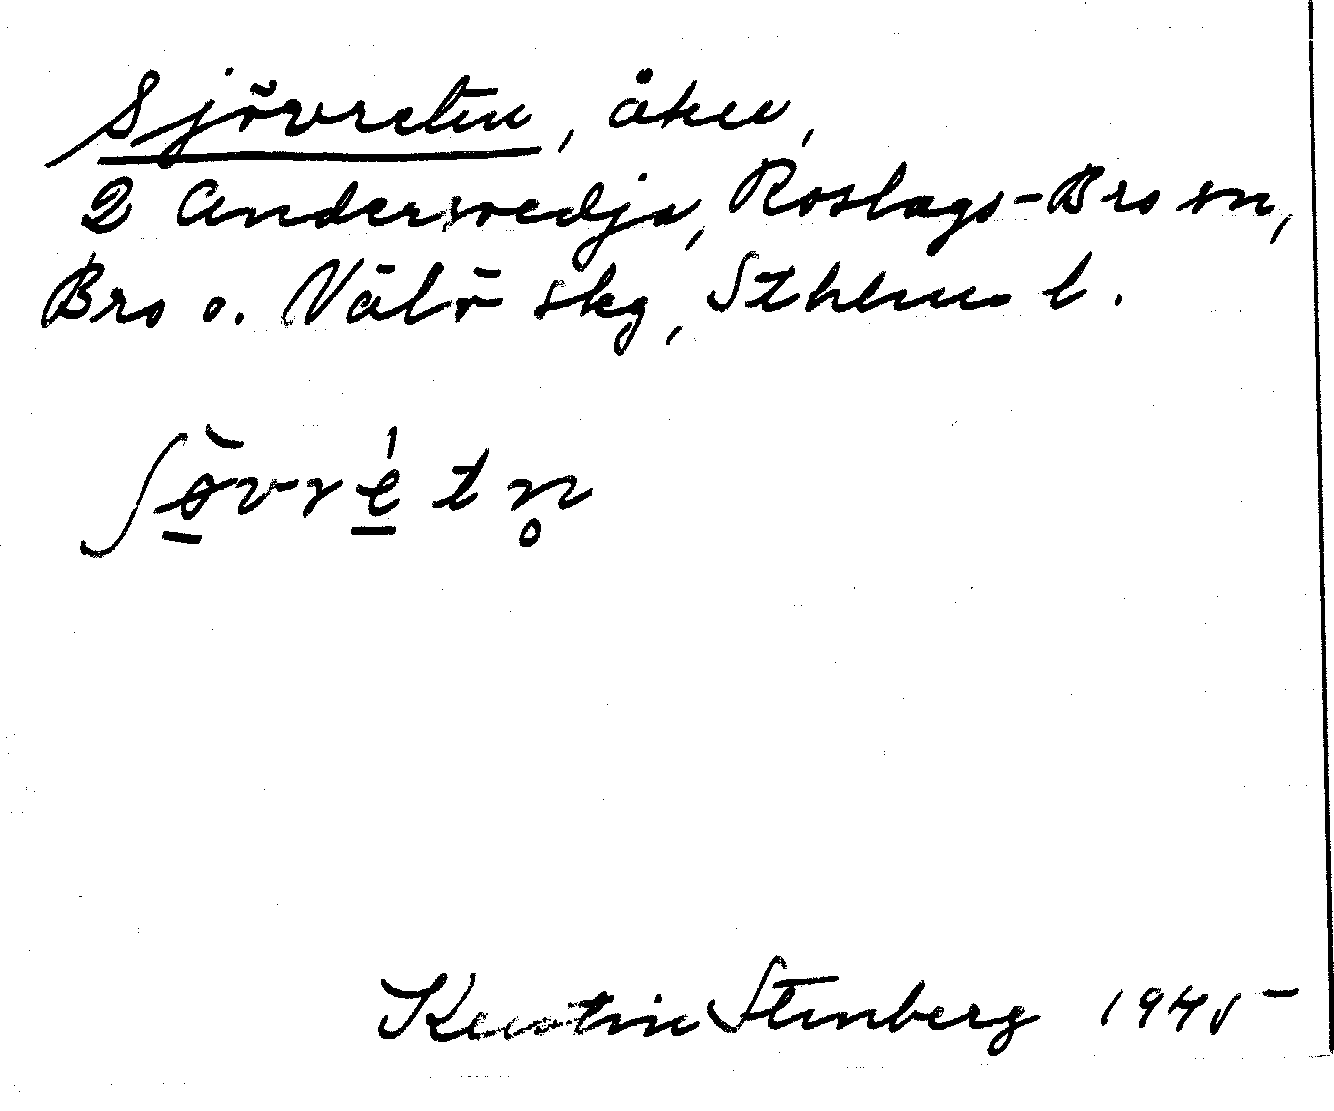 Sjövreten, åker,
2 Andersvedja, Roslags-Bro sn,
Bro o. Vätö skg, Sthlms l.
ʃö̀vrét n̥
Kerstin Stenberg 1945